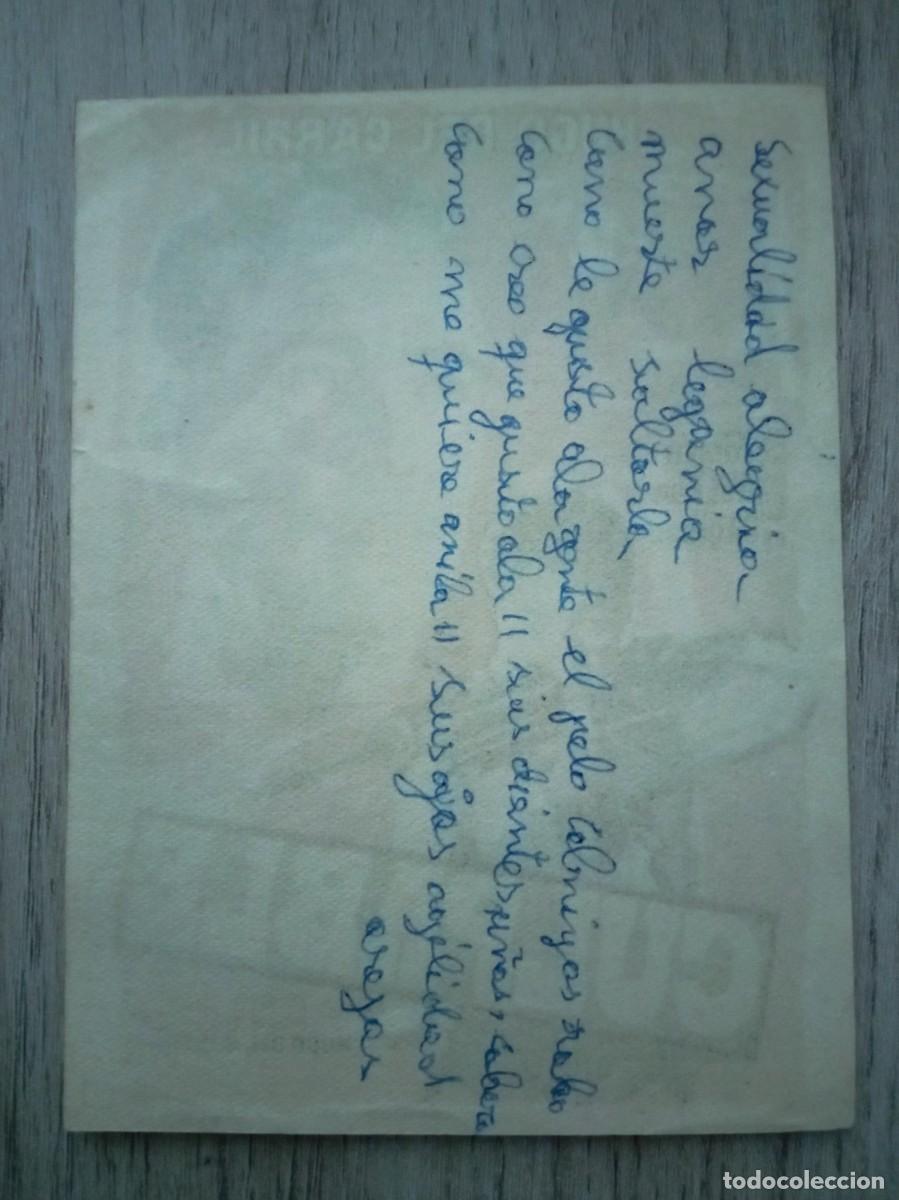 Sexualidad alegria
amor legania
mueste saltarla
Como le gusto ala gente el pelo colmiyos rabo
Como oso que gusto ala 11 sias dientes, uñas, cabeza
Como me quiere anila 11 sus ojos agélidad
orejas
HUGO DEL CARRIL
CU
todocoleccion